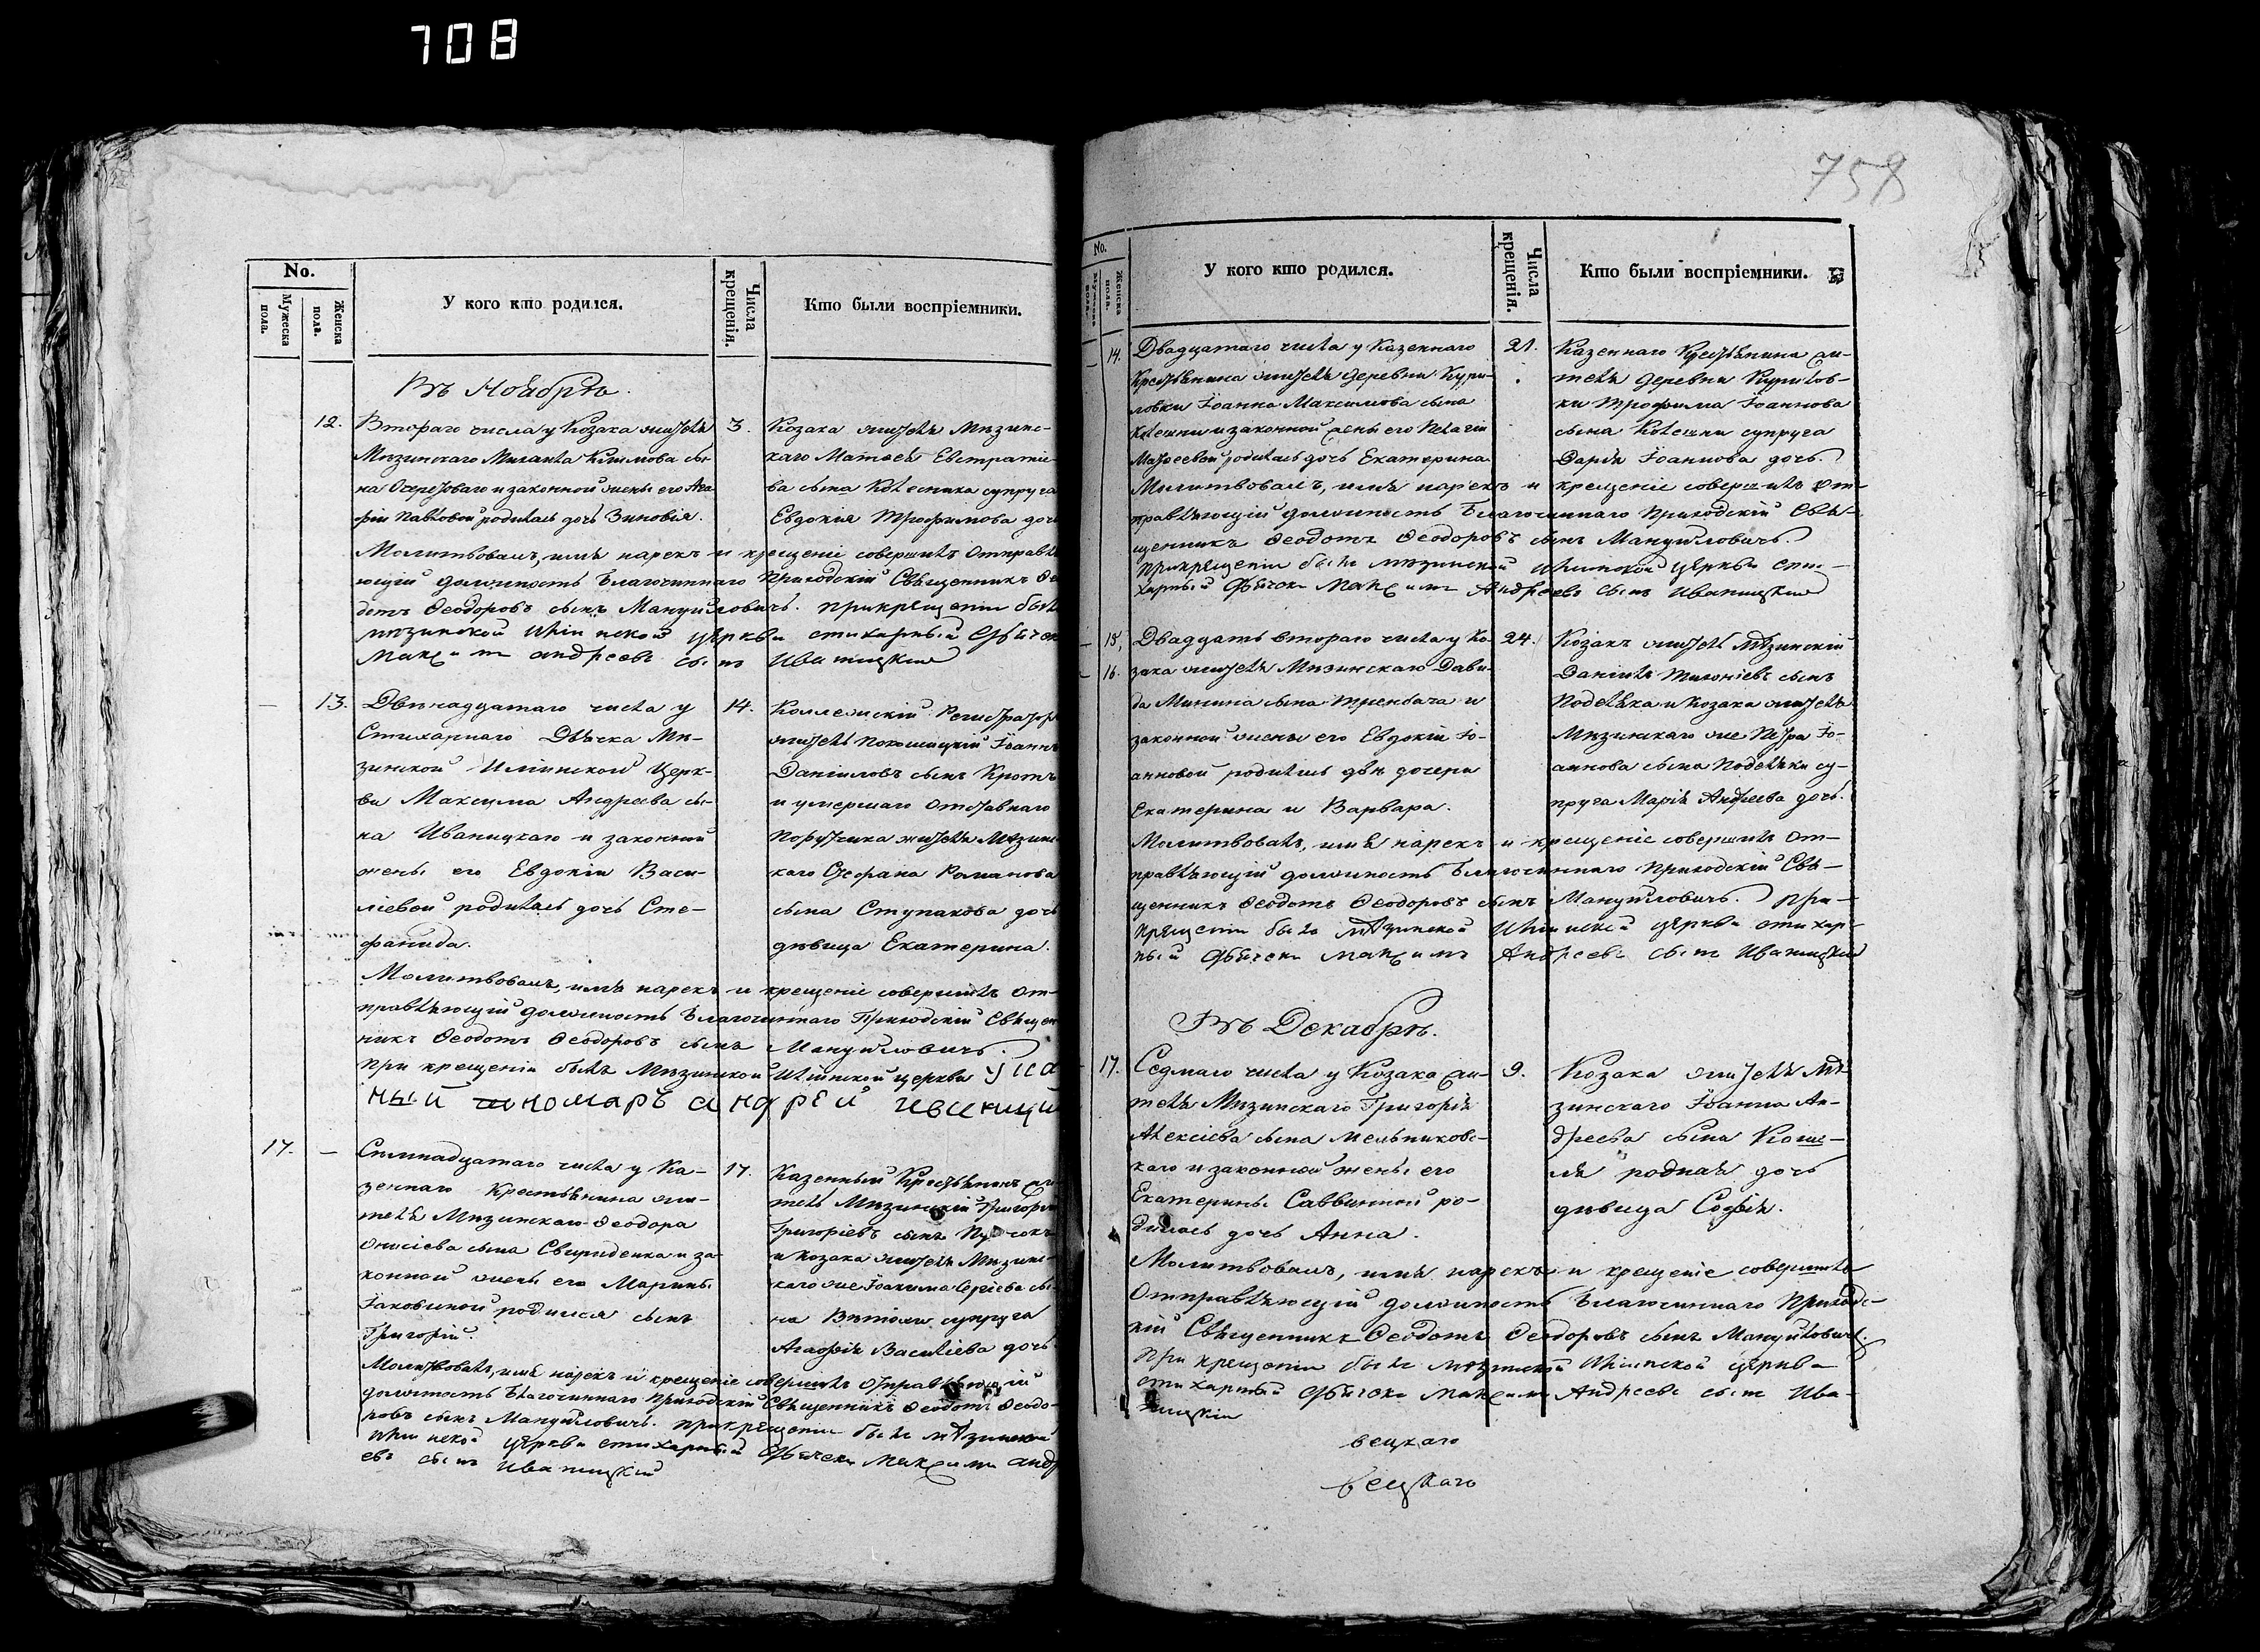 708
No.
Мужеска пола.
Женска пола.
У кого кто родился.
Числа крещенія.
Кто были воспріемники.
Въ Ноябрѣ.
12. Втораго числа у Козака жителя
Мѣзинскаго Михаила Климова сы-
на и законной жены его Ага-
фіи Павловой родилась дочь Зиновія.
3.
Козака жителя Мѣзинс-
каго Матвѣя Евстратіе-
ва сына Колесника супруга
Евдокія Трофимова дочь
Молитвовалъ, имя нарекъ и крещеніе совершилъ Отправля
ющій должность Благочиннаго Приходскій Священникъ Ѳео
дотъ Ѳеодоровъ сынъ Мануйловичъ. При крещеніи былъ
мѣзинской Иліинской церкви стихарный Дьячокъ
Максимъ андреевъ сынъ Иваницкій
— 13. Двѣнадцатаго числа у
Стихарнаго Дьячка Мѣ-
зинской Иліинской Церк-
ви Максима Андреева сы-
на Иваницкаго и законной
жены его Евдокіи Васи-
ліевой родилась дочь Сте-
фанида.
14.
Коллежскій Регистраторъ
житель Покошицкій Іоаннъ
Даніиловъ сынъ Кротъ
и умершаго отставнаго
Поручика жителя Мѣзинс
каго Стефана Романова
сына Ступакова дочь
дѣвица Екатерина.
Молитвовалъ, имя нарекъ и крещеніе совершилъ От-
правляющій должность Благочиннаго Приходскій Священ
никъ Ѳеодотъ Ѳеодоровъ сынъ Мануйловичъ.
При крещеніи былъ Мѣзинской Иліинской церкви
ный пономаръ андрей иваници
17. — Семнадцатаго числа у Ка-
зеннаго Крестьянина жи-
теля Мѣзинскаго Ѳеодора
Онисіева сына Свириденка и за-
конной жены его Марины
Іаковиной родился сынъ
Григорій.
17.
Казенный Крестьянинъ жи
тель Мѣзинскій Григорій
Григоріевъ сынъ
и козака жителя Мѣзинс-
каго же Іоакима Сергіева сы-
на супруга
Агафія Василіева дочь.
Молитвовалъ, имя нарекъ и крещеніе совершилъ Отправляющій
должность Благочиннаго Приходскій Священникъ Ѳеодотъ Ѳеодо-
ровъ сынъ Мануйловичъ. При крещеніи былъ мѣзинской
Иліинской церкви стихарный Дьячекъ Максимъ андре
евъ сынъ Иваницкій
758
No.
Мужеска пола.
Женска пола.
У кого кто родился.
Числа крещенія.
Кто были воспріемники.
— 14. Двадцатаго числа у Казеннаго
Крестьянина жителя деревни Кури-
ловки Іоанна Максимова сына
Колешни и законной жены его Пелагіи
Матвеевой родилась дочь Екатерина
21.
Казеннаго Крестьянина жи-
теля деревни Курилов-
ки Трофима Іоаннова
сына Колешни супруга
Дарія Іоаннова дочь.
Молитвовалъ, имя нарекъ и крещеніе совершилъ От-
правляющій должность Благочиннаго Приходскій Свя-
щенникъ Ѳеодотъ Ѳеодоровъ сынъ Мануйловичъ.
При крещеніи былъ мѣзинской Иліинской церкви сти-
харный Дьячокъ Максимъ Андреевъ сынъ Иваницкій
— 15, Двадцать втораго числа у Ко-
— 16. зака жителя Мѣзинскаго Дави-
да Минина сына Трембача и
законной жены его Евдокіи Іо-
анновой родились двѣ дочери
Екатерина и Варвара.
24.
Козакъ житель Мѣзинскій
Даніилъ Тихоніевъ сынъ
Поделяка и Козака жителя
Мѣзинскаго же Петра Іо-
аннова сына Поделяки су-
пруга Марія Андреева дочь.
Молитвовалъ, имя нарекъ и крещеніе совершилъ От-
правляющій должность Благочиннаго Приходскій Свя-
щенникъ Ѳеодотъ Ѳеодоровъ сынъ Мануйловичъ. При-
крещеніи былъ мѣзинской Иліинской церкви стихар-
ный Дьячекъ Максимъ Андреевъ сынъ Иваницкій
Въ Декабрѣ.
17. Седмаго числа у Козака жи-
теля Мѣзинскаго Григорія
Алексіева сына Мельниковс-
каго и законной жены его
Екатерины Саввиной ро-
дилась дочь Анна.
9.
Козака жителя Мѣ-
зинскаго Іоанна Ан-
дреева сына Коше-
ля родная дочь
дѣвица Софія.
Молитвовалъ, имя нарекъ и крещеніе совершилъ
Отправляющій должность Благочиннаго Приходс-
кій Священникъ Ѳеодотъ Ѳеодоровъ сынъ Мануйловичъ.
При крещеніи былъ мѣзинской Иліинской церкви
стихарный Дьячокъ Максимъ Андреевъ сынъ Ива-
ницкій
вецкаго
вецкаго